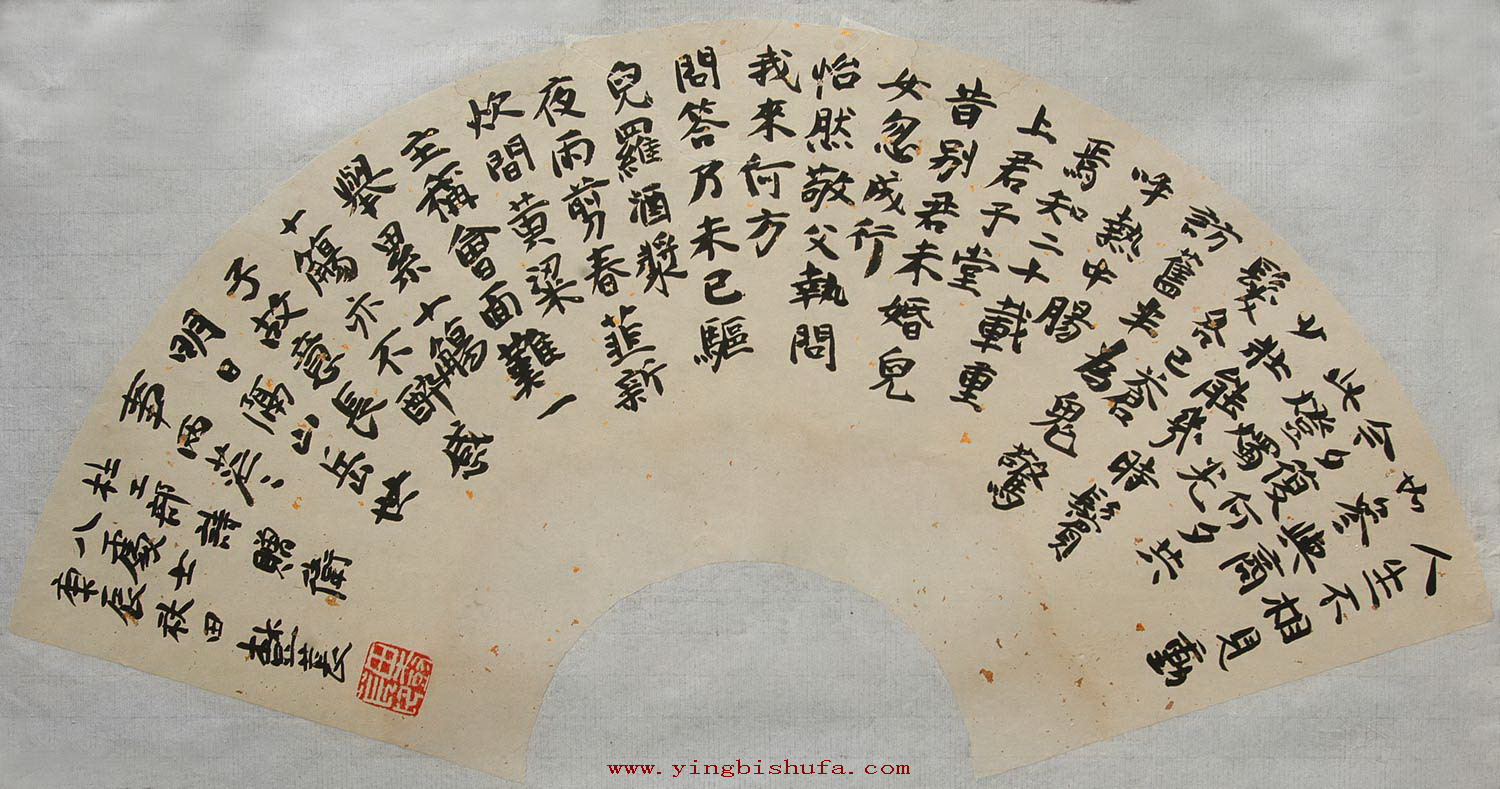 人生不相見動
如參與商
今夕復何夕共
此燈燭光
少壯能幾時鬢
髮各已蒼
訪舊半為鬼驚
呼熱中腸
焉知二十載重
上君子堂
昔別君未婚兒
女忽成行
怡然敬父執問
我來何方
問答乃未已驅
兒羅酒漿
夜雨剪春韭新
炊間黃粱
主稱會面難一
舉累十觴
十觴亦不醉感
子故意長
明日隔山岳世
事兩茫〻
杜工部詩贈衛
八處士
庚辰秋田蘊章
www.yingbishufa.com